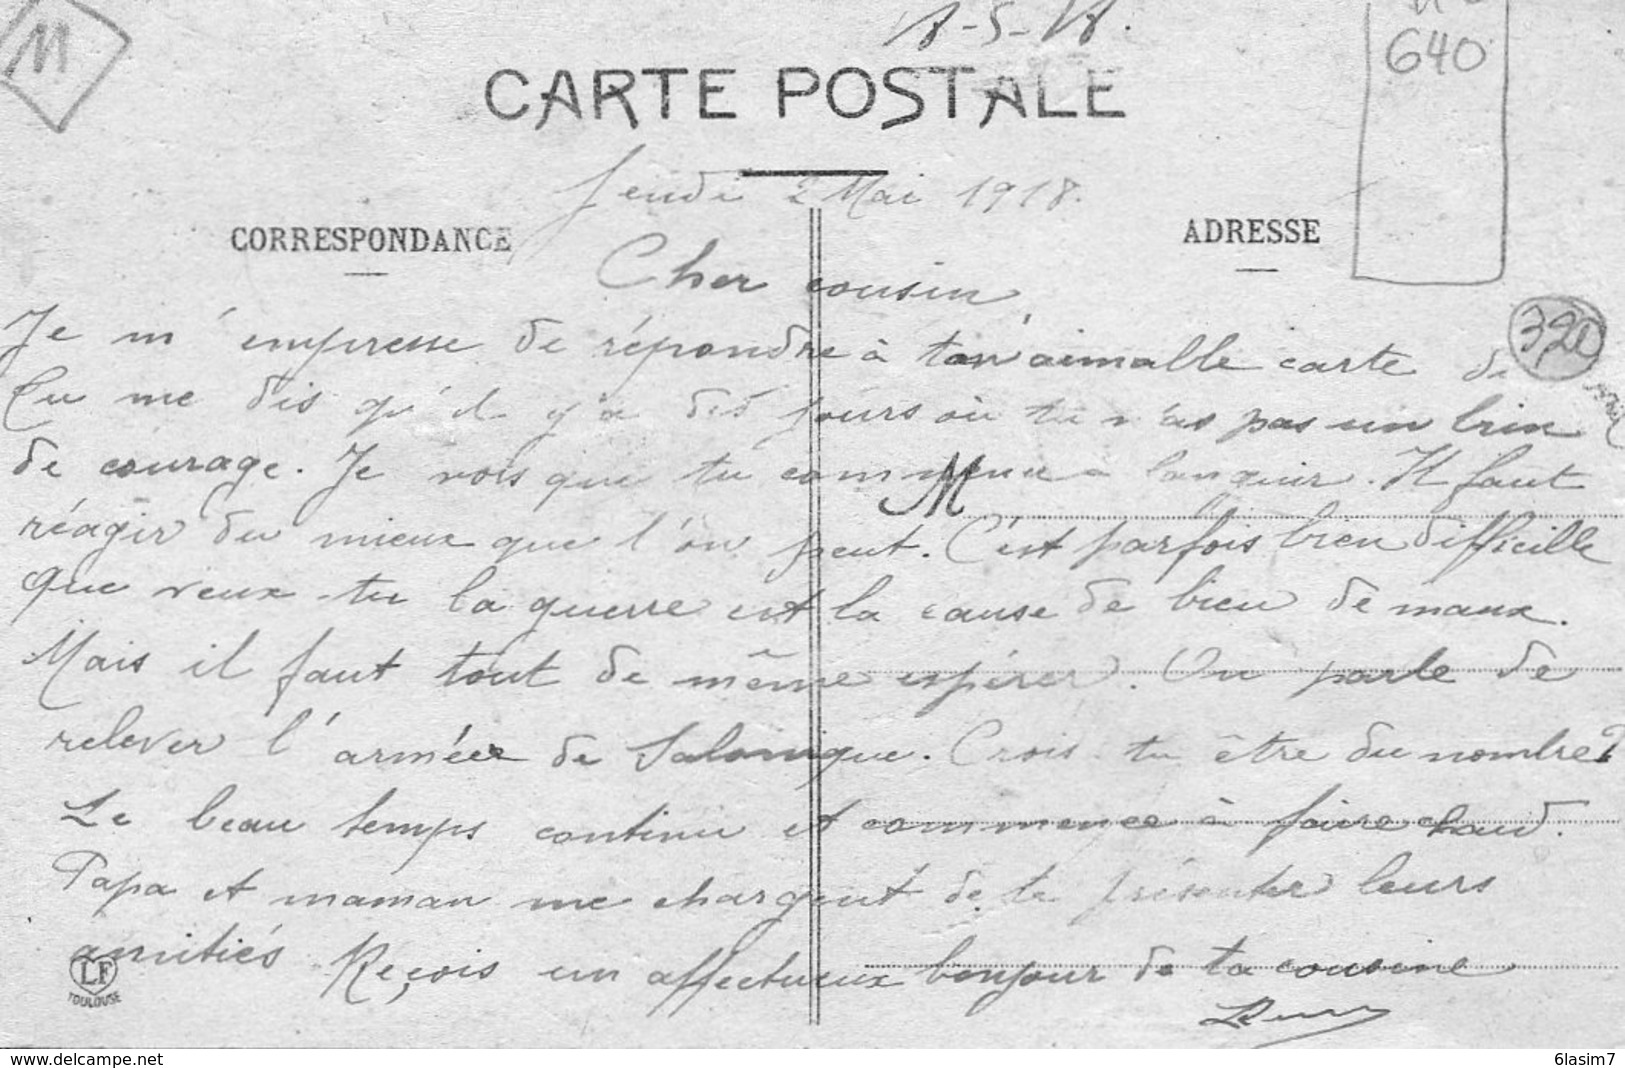 11
8-5-18.
640
CARTE POSTALE
Jeudi 2 Mai 1918.
CORRESPONDANCE
ADRESSE
Cher cousin
320
Je m'empresse de répondre à ton aimable carte de
Tu me dis qu'il y a des jours où tu n'as pas un brin
de courage. Je vois que tu commence a languir. Il faut
M
réagir du mieux que l'on peut. C'est parfois bien difficille
que veux-tu la guerre est la cause de bien de maux.
Mais il faut tout de même espérer. On parle de
relever l'armée de Salonique. Crois-tu être du nombre?
Le beau temps continu et commence à faire chaud.
Papa et maman me chargent de te présenter leurs
amitiés. Reçois un affectueux bonjour de ta cousine
LF
TOULOUSE
www.delcampe.net
6lasim7